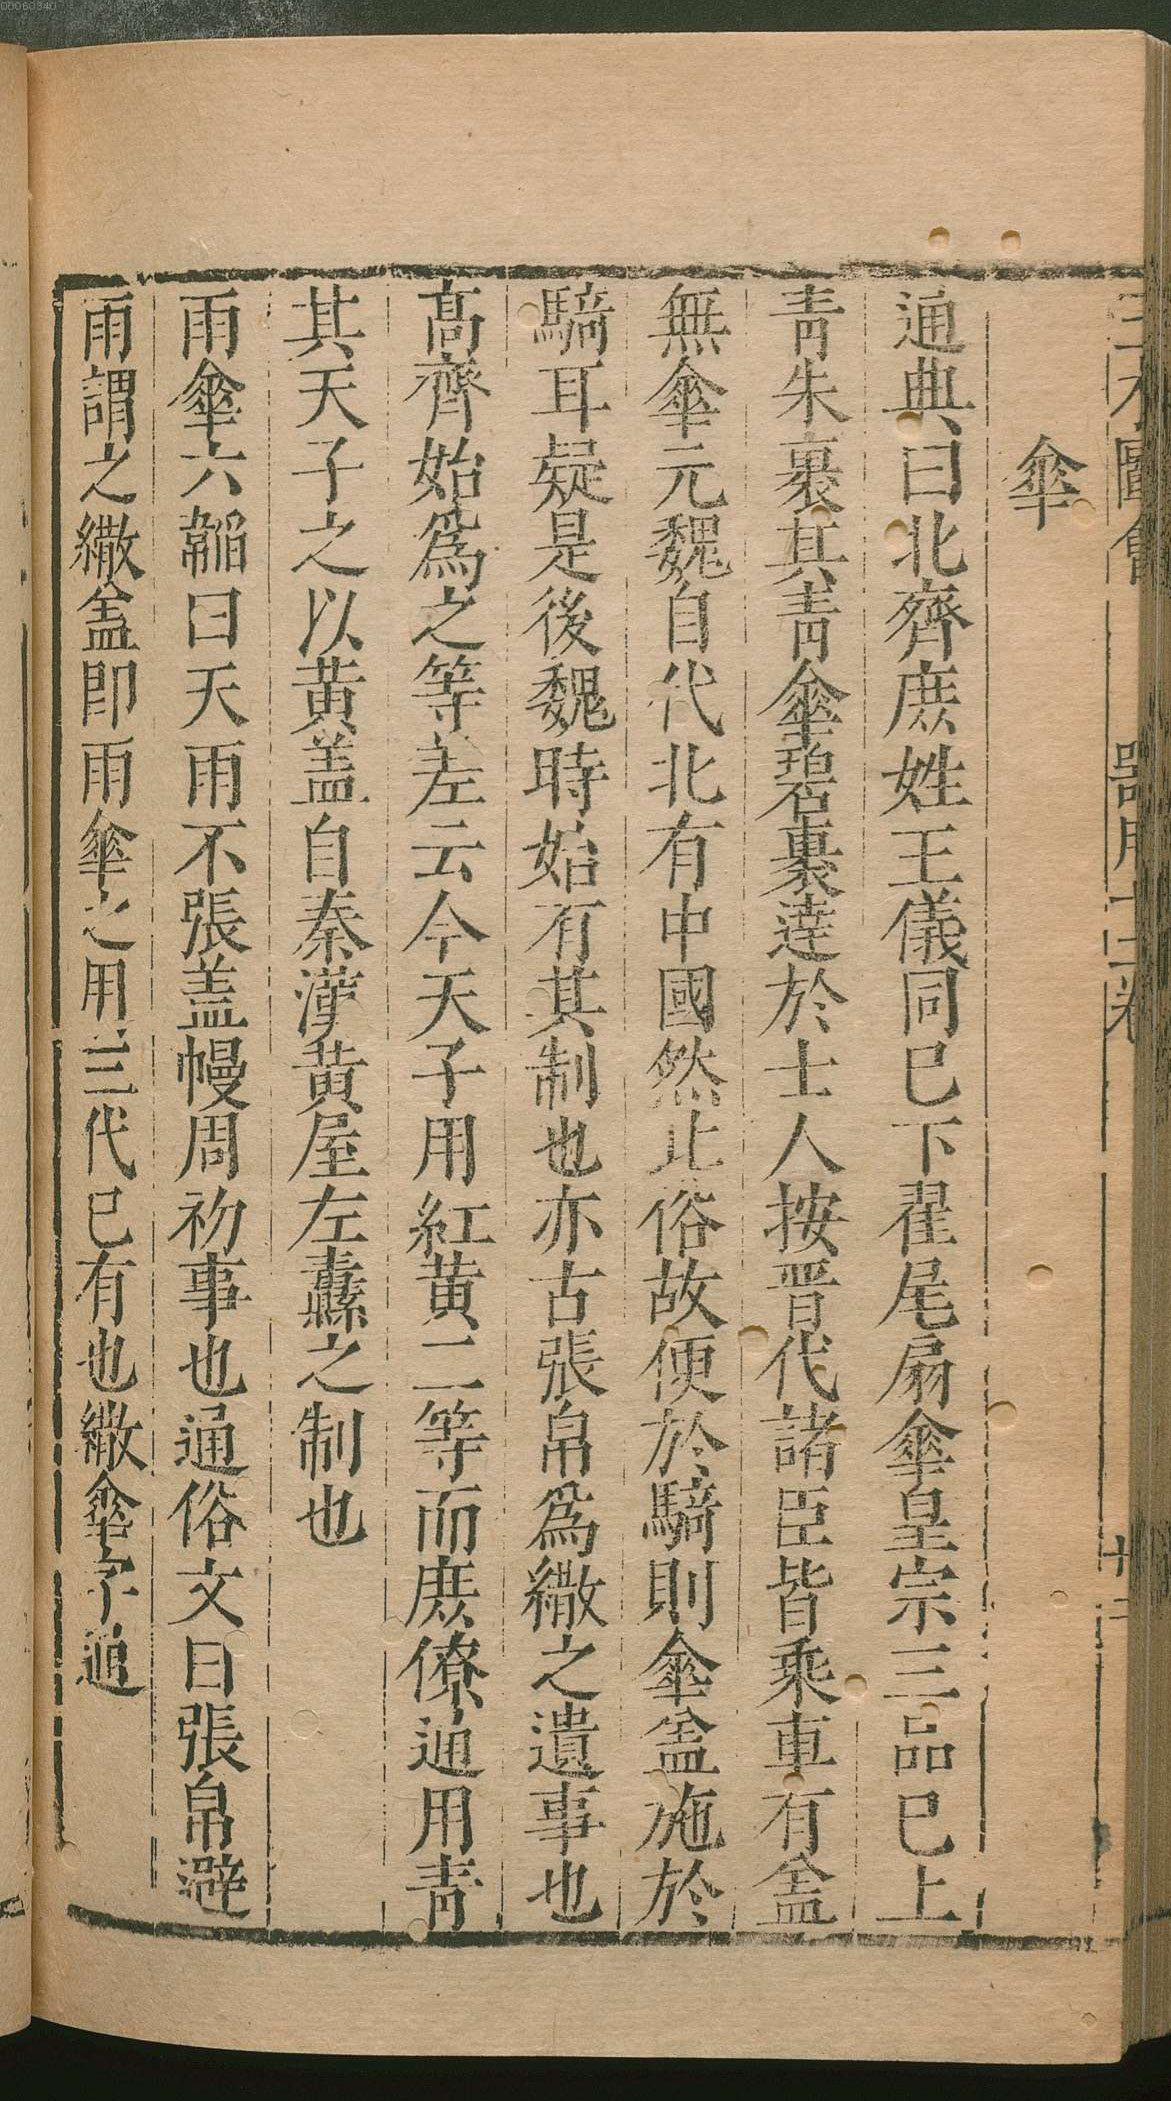 00060340
三才圖會
器用十二卷
十二
傘
通典曰北齊庻姓王儀同巳下翟尾扇傘皇宗三品巳上
青朱裏其青傘碧裏達於士人按晋代諸臣皆乘車有盖
無傘元魏自代北有中國然北俗故便於騎則傘盖施於
騎耳疑是後魏時始有其制也亦古張帛爲繖之遺事也
髙齊始爲之等差云今天子用紅黄二等而庻僚通用青
其天子之以黄盖自秦漢黄屋左纛之制也
雨傘六韜曰天雨不張盖幔周初事也通俗文曰張帛避
雨謂之繖盖即雨傘之用三代巳有也繖傘字通